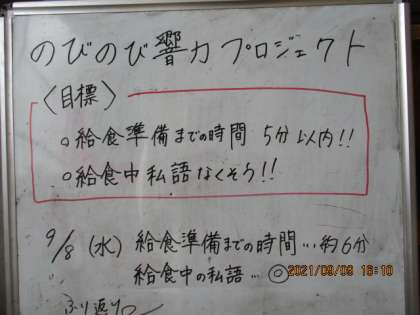 のびのび響力プロジェクト
〈目標〉
○給食準備までの時間 5分以内!!
○給食中私語なくそう!!
9/8 (水) 給食準備までの時間…約6分
給食中の私語…◎
2021/09/09 16:10
ふり返り